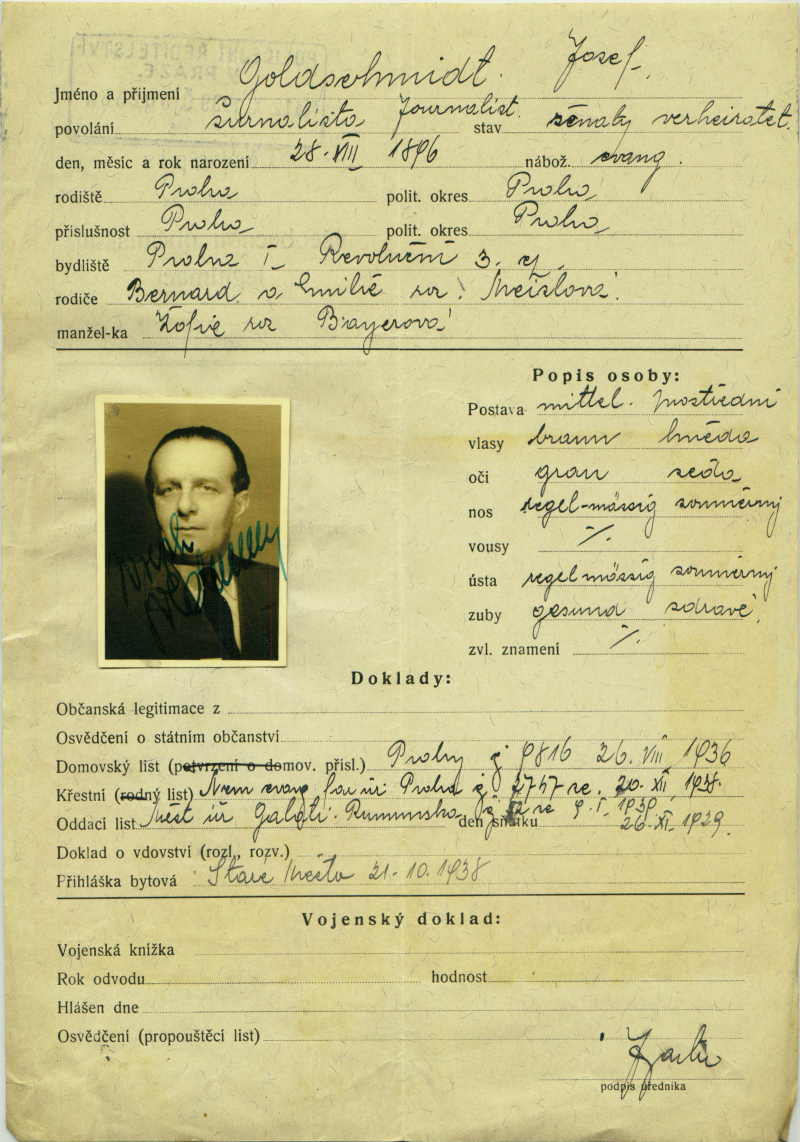 Goldschmidt Josef
Jméno a přijmení
povolání žurnalista Journalist. stav ženatý verheiratet.
den, měsíc a rok narození 28. VIII 1896 nábož. evang.
rodiště Praha polit. okres Praha
příslušnost Praha polit. okres Praha
bydliště Praha I. Revoluční 3. čj.
rodiče Bernard a Emilie roz.
manžel-ka Žofie roz Bayerová
Popis osoby:
Postava mittel. prostřední
vlasy braun hnědá
oči grau šedá
nos regel-mässig souměrný
vousy ./.
ústa regelmässig souměrný
zuby gesund zdravé,
zvl. znamení ./.
Doklady:
Občanská legitimace z
Osvědčení o státním občanství
Domovský list (potvrzení o domov. přísl.) Prahy čj 9816 26. VIII 1936
Křestní (rodný list) Něm evang. far úř. Praha čj. 20. XII. 1938.
Oddací list Měst úř Galati. Rumunsko den sňatku 26. XI. 1929.
Doklad o vdovství (rozl., rozv.)
Přihláška bytová Staré Město 21.10.1938
Vojenský doklad:
Vojenská knížka
Rok odvodu hodnost
Hlášen dne
Osvědčení (propouštěcí list)
podpis úředníka